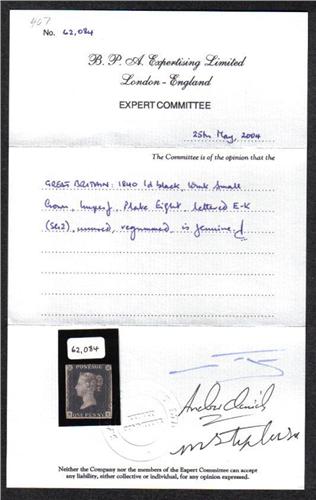 407
No. 62,084
B. P. A. Expertising Limited
London - England
EXPERT COMMITTEE
25th May, 2004
The Committee is of the opinion that the
GREAT BRITAIN: 1840 1d black, Wmk Small
Crown, Imperf, Plate Eight lettered E-K
(SG.2), unused, regummed, is genuine.
62,084
POSTAGE
ONE PENNY
Neither the Company nor the members of the Expert Committee can accept
any liability, either collective or individual, for any opinion expressed.